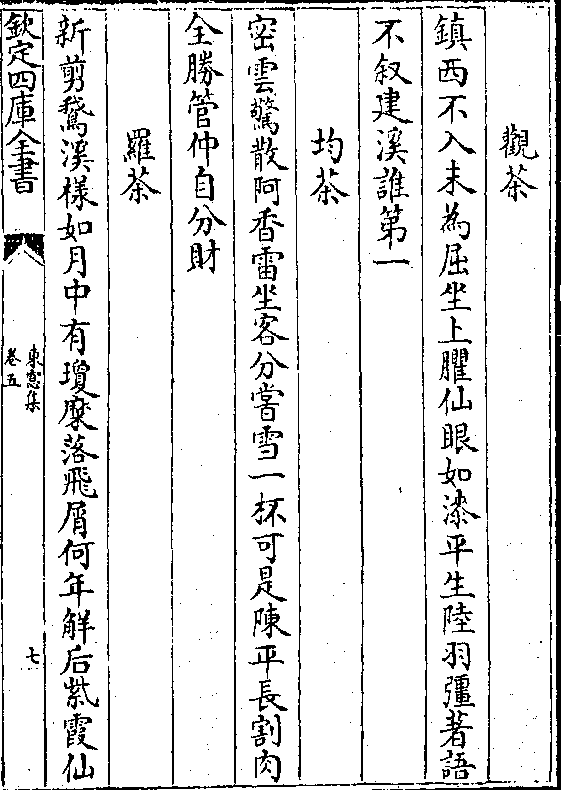 觀茶
鎮西不入未為屈坐上臞仙眼如漆平生陸羽彊著語
不叙建溪誰第一
均茶
密雲驚散阿香雷坐客分嘗雪一杯可是陳平長割肉
全勝管仲自分財
羅茶
新剪鵞溪樣如月中有瓊麋落飛屑何年觧后紫霞仙
欽定四庫全書
東窻集
卷五
七